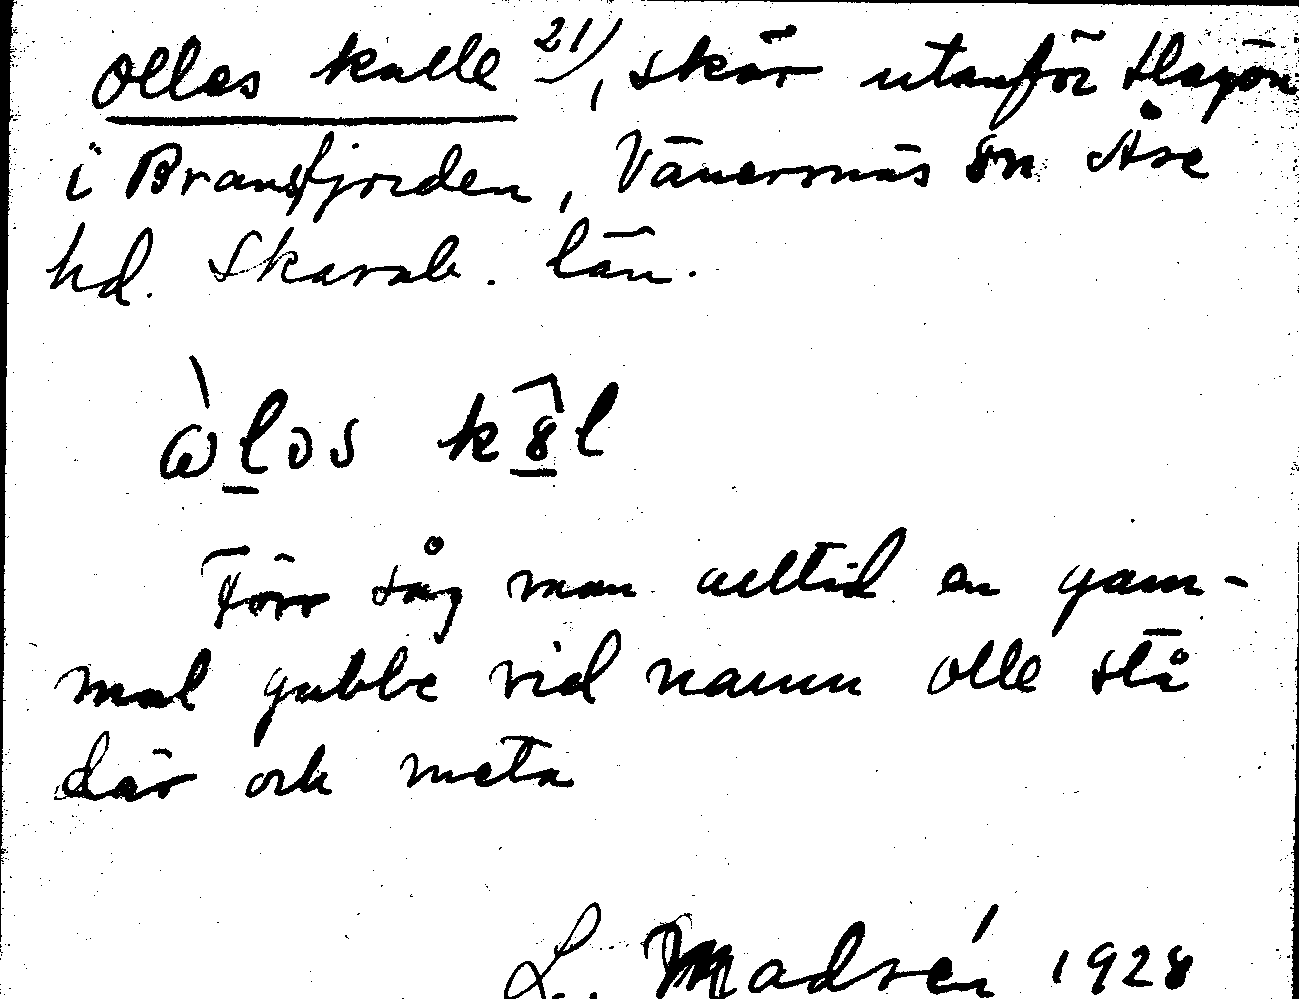 Olles kulle 21), skär utanför Hagön
i Brandsfjorden, Vänersnäs sn Åse
hd. Skarab. län.
ὼlos kȣ̂l
Förr såg man alltid en gam-
mal gubbe vid namn Olle stå
där och meta
L. Madsén 1928